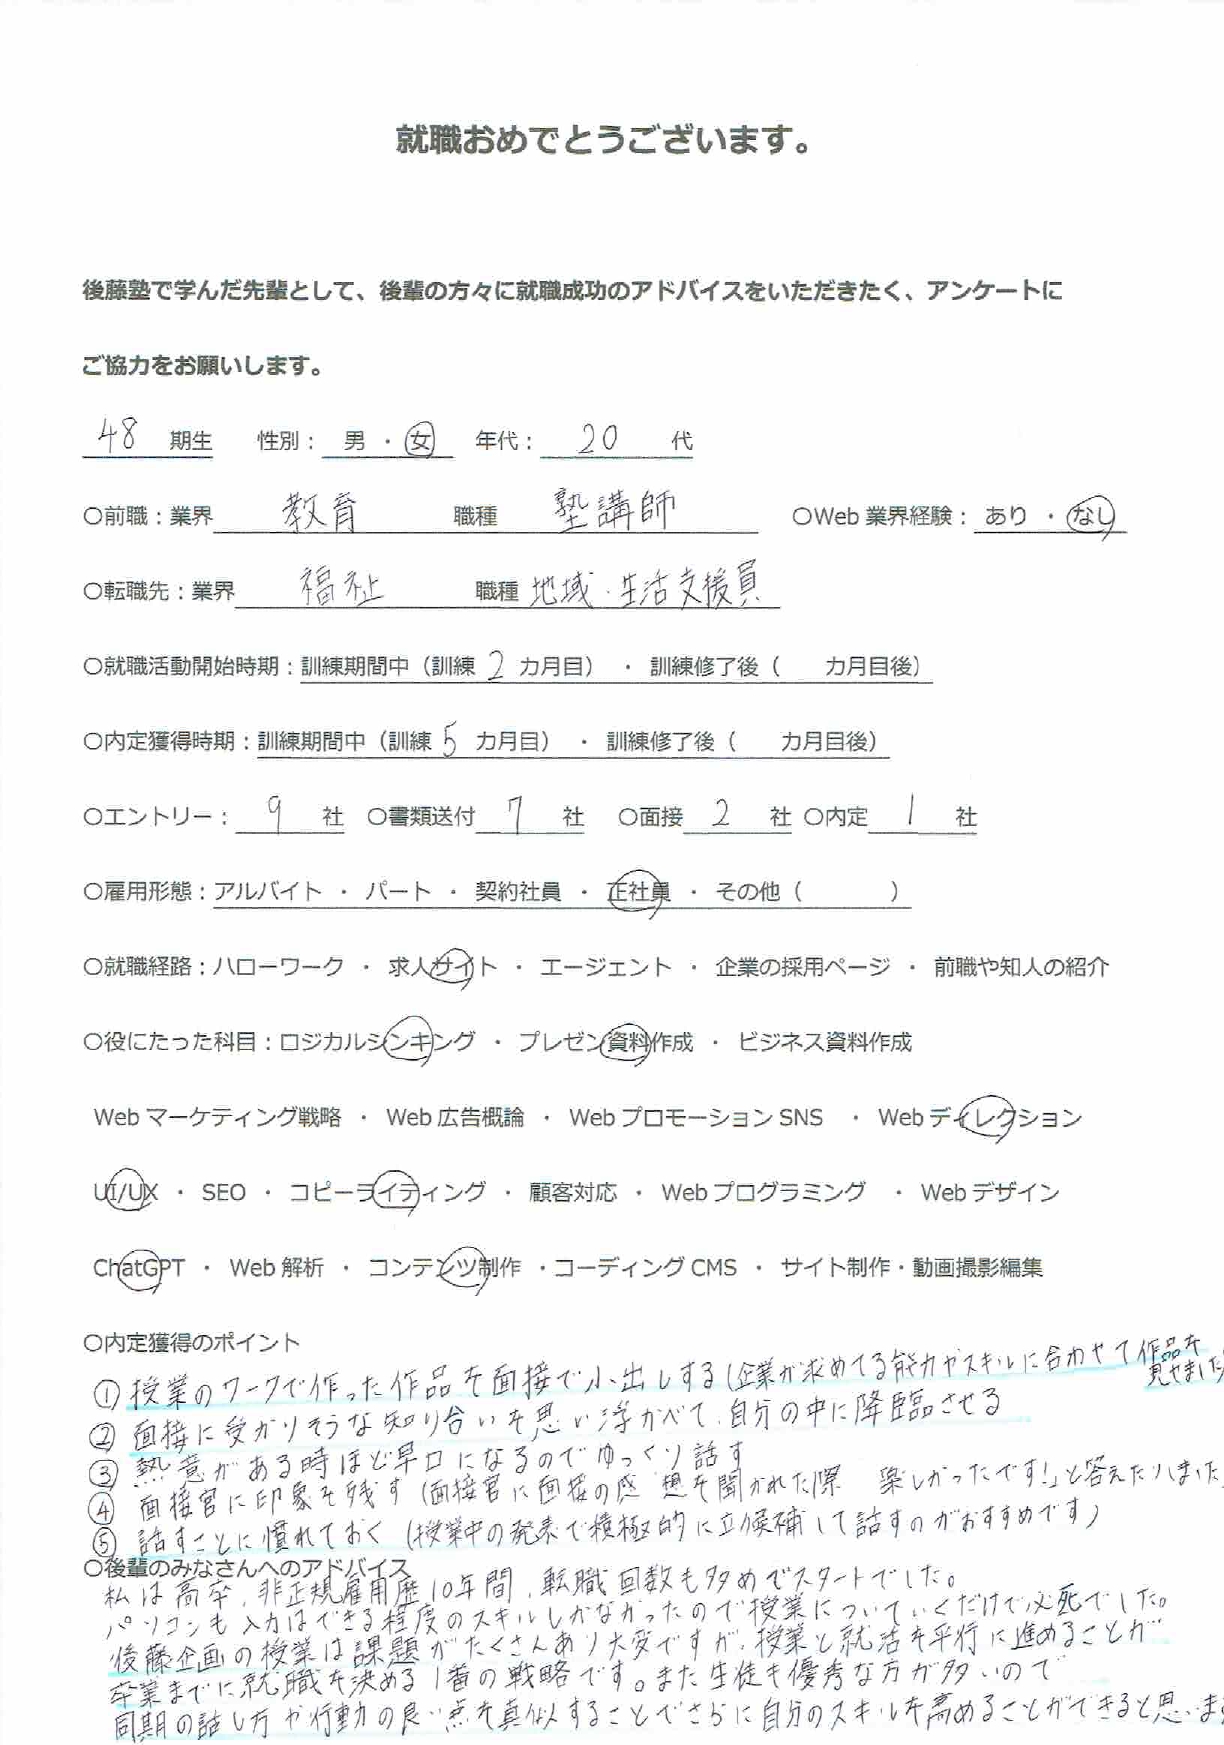 就職おめでとうございます。
後藤塾で学んだ先輩として、後輩の方々に就職成功のアドバイスをいただきたく、アンケートに
ご協力をお願いします。
48 期生 性別： 男 ・ 女 年代： 20 代
○前職：業界 教育 職種 塾講師 ○Web 業界経験： あり ・ なし
○転職先：業界 福祉 職種 地域・生活支援員
○就職活動開始時期：訓練期間中（訓練 2 カ月目） ・ 訓練修了後（ カ月目後）
○内定獲得時期：訓練期間中（訓練 5 カ月目） ・ 訓練修了後（ カ月目後）
○エントリー： 9 社 ○書類送付 7 社 ○面接 2 社 ○内定 1 社
○雇用形態：アルバイト ・ パート ・ 契約社員 ・ 正社員 ・ その他（ ）
○就職経路：ハローワーク ・ 求人サイト ・ エージェント ・ 企業の採用ページ ・ 前職や知人の紹介
○役にたった科目：ロジカルシンキング ・ プレゼン資料作成 ・ ビジネス資料作成
Web マーケティング戦略 ・ Web 広告概論 ・ Web プロモーション SNS ・ Web ディレクション
UI/UX ・ SEO ・ コピーライティング ・ 顧客対応 ・ Web プログラミング ・ Web デザイン
ChatGPT ・ Web 解析 ・ コンテンツ制作 ・コーディング CMS ・ サイト制作・動画撮影編集
○内定獲得のポイント
① 授業のワークで作った作品を面接で小出しする（企業が求めてる能力やスキルに合わせて作品を
見せました
② 面接に受かりそうな知り合いを思い浮かべて、自分の中に降臨させる
③ 熱意がある時ほど早口になるのでゆっくり話す
④ 面接官に印象を残す（面接官に面接の感想を聞かれた際 楽しかったです！」と答えたりしました
⑤ 話すことに慣れておく（授業中の発表で積極的に立候補して話すのがおすすめです）
○後輩のみなさんへのアドバイス
私は高卒、非正規雇用歴10年間、転職回数も多めでスタートでした。
パソコンも入力はできる程度のスキルしかなかったので授業についていくだけで必死でした。
後藤企画の授業は課題がたくさんあり大変ですが、授業と就活を平行に進めることが
卒業までに就職を決める1番の戦略です。また生徒も優秀な方が多いので
同期の話し方や行動の良い点を真似することでさらに自分のスキルを高めることができると思います